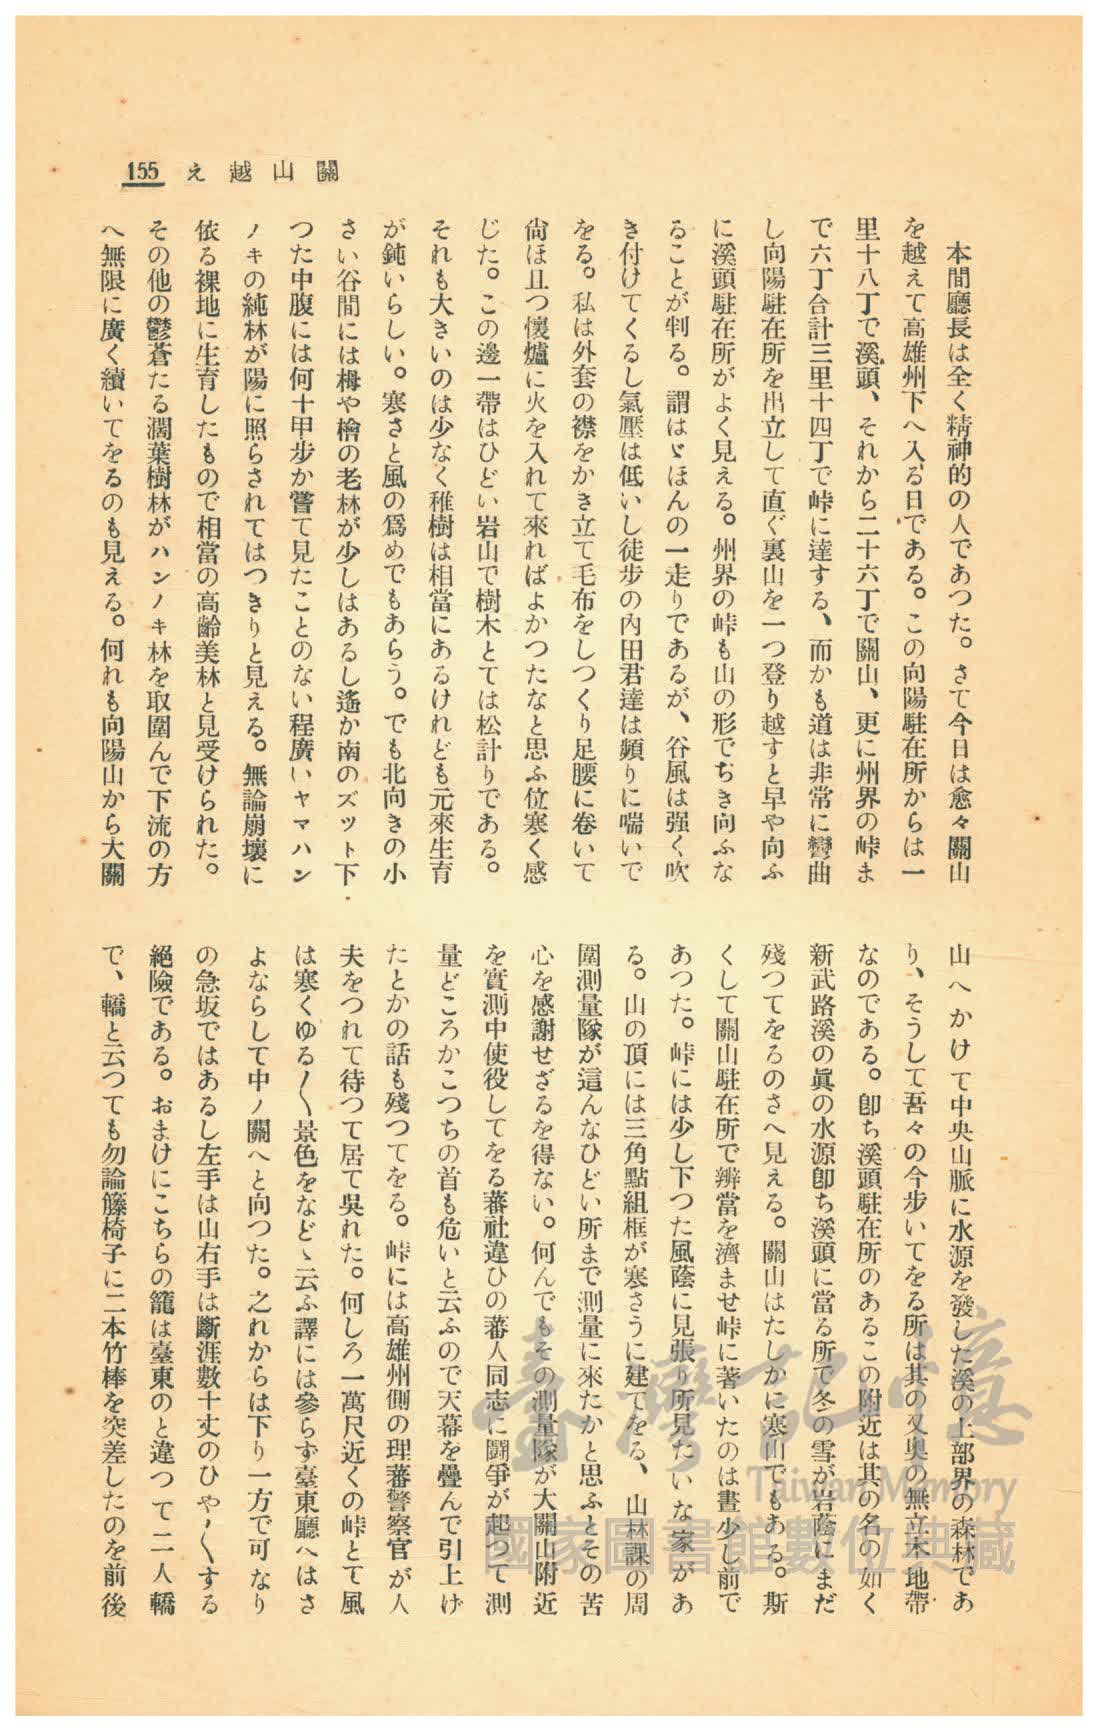 關山越え 155
本間廳長は全く精神的の人であつた。さて今日は愈々關山
を越えて高雄州下へ入る日である。この向陽駐在所からは一
里十八丁で溪頭、それから二十六丁で關山、更に州界の峠ま
で六丁合計三里十四丁で峠に達する、而かも道は非常に彎曲
し向陽駐在所を出立して直ぐ裏山を一つ登り越すと早や向ふ
に溪頭駐在所がよく見える。州界の峠も山の形でぢき向ふな
ることが判る。謂はゞほんの一走りであるが、谷風は强く吹
き付けてくるし氣壓は低いし徒步の內田君達は頻りに喘いで
をる。私は外套の襟をかき立て毛布をしつくり足腰に卷いて
尙ほ且つ懷爐に火を入れて來ればよかつたなと思ふ位寒く感
じた。この邊一帶はひどい岩山で樹木とては松計りである。
それも大きいのは少なく稚樹は相當にあるけれども元來生育
が鈍いらしい。寒さと風の爲めでもあらう。でも北向きの小
さい谷間には栂や檜の老林が少しはあるし遙か南のズツト下
つた中腹には何十甲步か嘗て見たことのない程廣いヤマハン
ノキの純林が陽に照らされてはつきりと見える。無論崩壞に
依る裸地に生育したもので相當の高齡美林と見受けられた。
その他の鬱蒼たる濶葉樹林がハンノキ林を取圍んで下流の方
へ無限に廣く續いてをるのも見える。何れも向陽山から大關
山へかけて中央山脈に水源を發した溪の上部界の森林であ
り、そうして吾々の今步いてをる所は其の又奥の無立木地帶
なのである。卽ち溪頭駐在所のあるこの附近は其の名の如く
新武路溪の眞の水源卽ち溪頭に當る所で冬の雪が岩蔭にまだ
殘つてをるのさへ見える。關山はたしかに寒山でもある。斯
くして關山駐在所で辨當を濟ませ峠に著いたのは晝少し前で
あつた。峠には少し下つた風蔭に見張り所見たいな家があ
る。山の頂には三角點組框が寒さうに建てをる、山林課の周
圍測量隊が這んなひどい所まで測量に來たかと思ふとその苦
心を感謝せざるを得ない。何んでもその測量隊が大關山附近
を實測中使役してをる蕃社違ひの蕃人同志に鬪爭が起つて測
量どころかこつちの首も危いと云ふので天幕を疊んで引上げ
たとかの話も殘つてをる。峠には高雄州側の理蕃警察官が人
夫をつれて待つて居て吳れた。何しろ一萬尺近くの峠とて風
は寒くゆる〳〵景色をなどゝ云ふ譯には參らず臺東廳へはさ
よならして中ノ關へと向つた。之れからは下り一方で可なり
の急坂ではあるし左手は山右手は斷涯數十丈のひや〳〵する
絕險である。おまけにこちらの籠は臺東のと違つて二人轎
で、轎と云つても勿論籐椅子に二本竹棒を突差したのを前後
臺灣記憶
Taiwan Memory
國家圖書館數位典藏